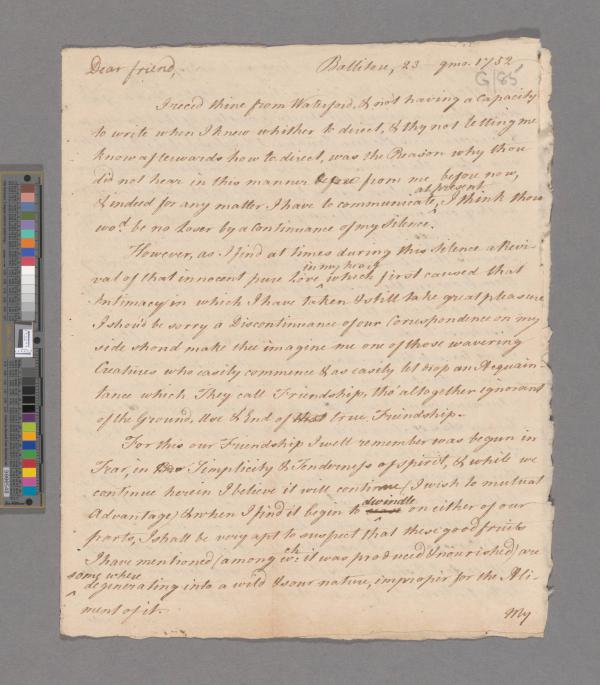 Dear friend,
Ballitore, 23 9mo. 1752
G/85
I reced thine from Waterford, & not having a Capacity
to write when I knew whither to direct, & thy not letting me
know afterwards how to direct, was the Reason why thou
did not hear in this manner before from me before now,
at present
& indeed for any matter I have to communicate, I think thou
wo.d be no Loser by a Continuance of my Silence.
However, as I find at times during this Silence a Revi-
in my heart
val of that innocent pure Love which first caused that
Intimacy in which I have taken & still take great pleasure
I shou'd be sorry a Discontinuance of our Correspondence on my
side shoud make thee imagine me one of those wavering
Creatures who easily commence & as easily let drop an Acquain-
tance which They call Friendship, tho' altogether ignorant
of the Ground, Use & End of that true Friendship.
For this our Friendship I well remember was begun in
Fear, in Simplicity & Tenderness of spirit, & while we
continue herein I believe it will continue (I wish to mutual
dwindle
Advantage) & when I find it begin to on either of our
parts, I shall be very apt to suspect that these good fruits
I have mentioned (among wch. it was produced & nourished) are
some where
degenerating into a wild & sour nature, improper for the Ali-
ment of it.
My